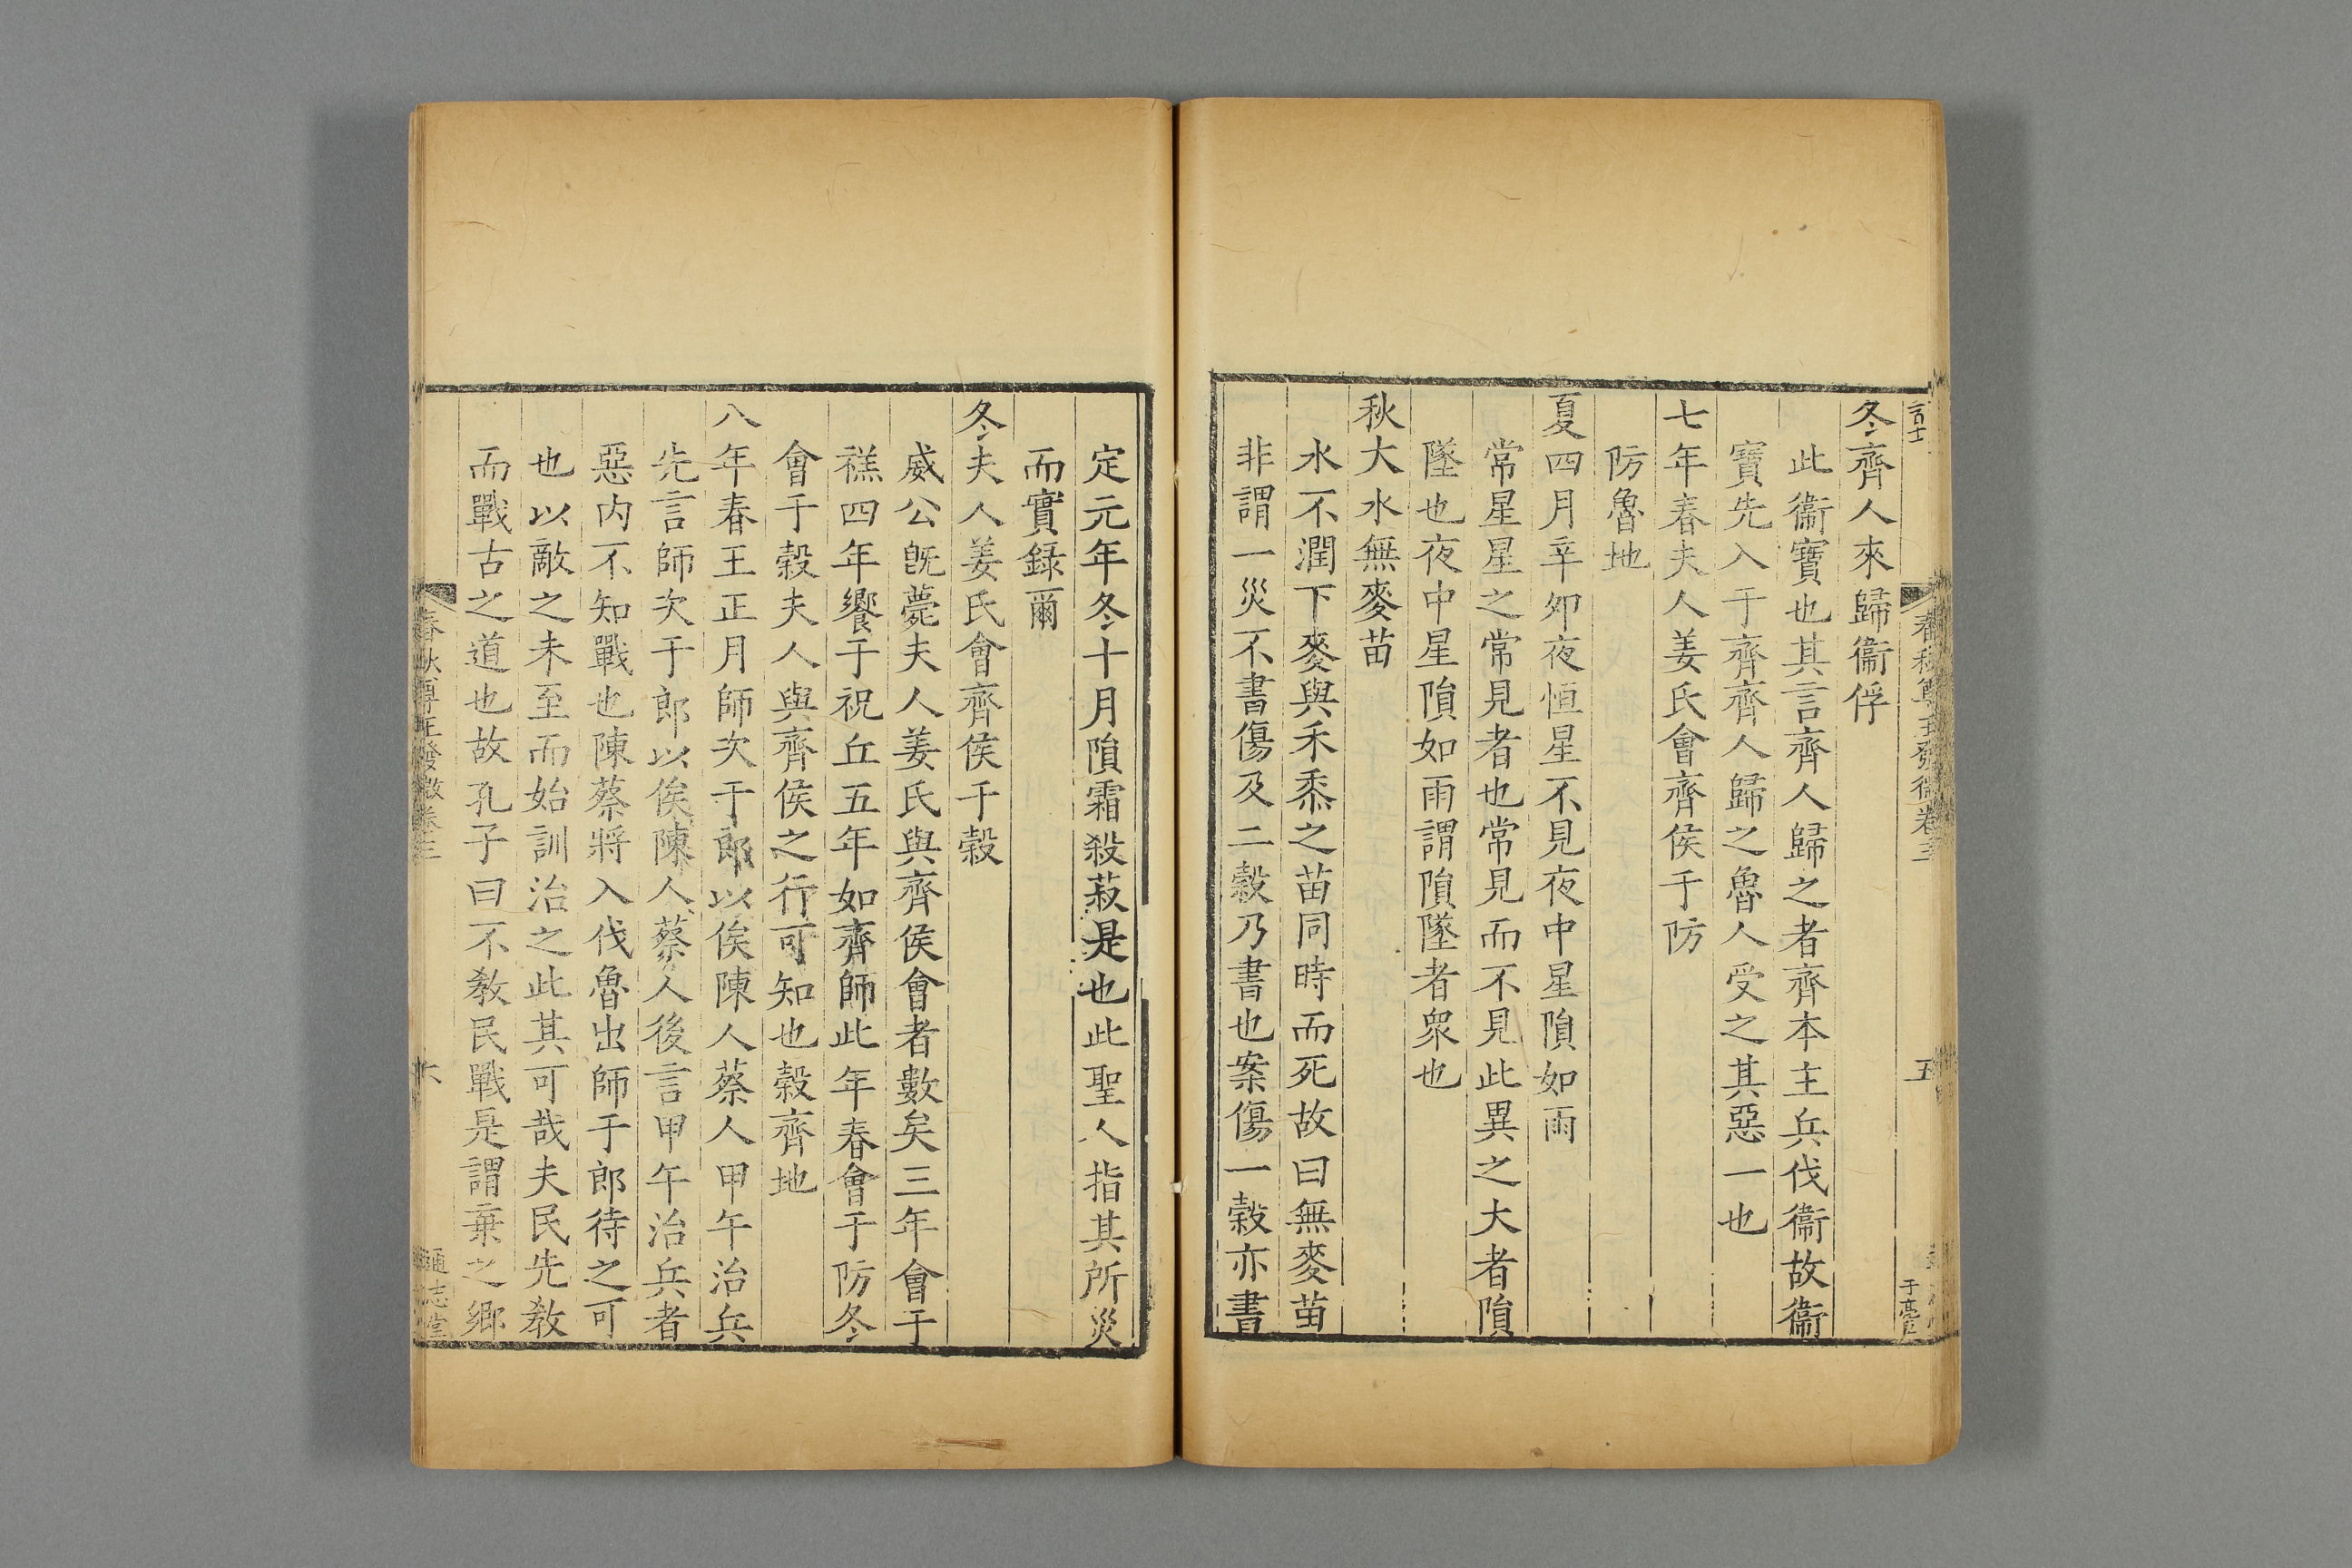 冬齊人來歸衞俘
此衞寶也其言齊人歸之者齊本主兵伐衞故衞
寶先入于齊齊人歸之魯人受之其惡一也
七年春夫人姜氏會齊侯于防
防魯地
夏四月辛卯夜恒星不見夜中星隕如雨
常星星之常見者也常見而不見此異之大者隕
墜也夜中星隕如雨謂隕墜者衆也
秋大水無麥苗
水不潤下麥與禾黍之苗同時而死故曰無麥苗
非謂一災不書傷及二穀乃書也案傷一穀亦書
定元年冬十月隕霜殺菽是也此聖人指其所災
而實録爾
冬夫人姜氏會齊侯于穀
威公旣薨夫人姜氏與齊侯會者數矣三年會于
禚四年饗于祝丘五年如齊師此年春會于防冬
會于穀夫人與齊侯之行可知也穀齊地
八年春王正月師次于郎以俟陳人蔡人甲午治兵
先言師次于郎以俟陳人蔡人後言甲午治兵者
惡内不知戰也陳蔡將入伐魯出師于郎待之可
也以敵之未至而始訓治之此其可哉夫民先教
而戰古之道也故孔子曰不教民戰是謂棄之鄉
春秋尊王發微卷三
六
通志堂